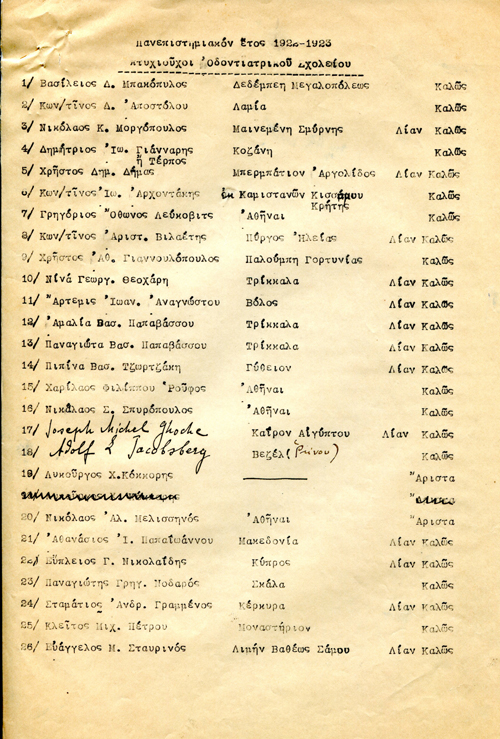 Πανεπιστημιακόν ἔτος 1922-1923
Πτυχιοῦχοι Ὀδοντιατρικοῦ Σχολείου
1/ Βασίλειος Δ. Μπακόπυλος Δεδέμπεη Μεγαλοπόλεως Καλῶς
2/ Κων/τῖνος Δ. Ἀποστόλου Λαμία Καλῶς
3/ Νικόλαος Κ. Μοργόπουλος Μαινεμένη Σμύρνης Λίαν Καλῶς
4/ Δημήτριος Ἰω. Γιάνναρης Κοζάνη Καλῶς
ἤ Τέρπος
5/ Χρῆστος Δημ. Δήμας Μπερμπάτιον Ἀργολίδος Λίαν Καλῶς
6/ Κων/τῖνος Ἰω. Ἀρχοντάκης ἐκ Καμιστανῶν Κισσάμου Καλῶς
Κρήτης
7/ Γρηγόριος Ὄθωνος Λεύκοβιτς Ἀθῆναι Καλῶς
8/ Κων/τῖνος Ἀριστ. Βιλαέτης Πύργος Ἠλείας Λίαν Καλῶς
9/ Χρῆστος Ἀθ. Γιαννουλόπουλος Παλούμπη Γορτυνίας Καλῶς
10/ Νίνά Γεωργ. Θεοχάρη Τρίκκαλα Λίαν Καλῶς
11/ Ἄρτεμις Ἰωαν. Ἀναγνώστου Βόλος Λίαν Καλῶς
12/ Ἀμαλία Βασ. Παπαβάσσου Τρίκκαλα Λίαν Καλῶς
13/ Παναγιώτα Βασ. Παπαβάσσου Τρίκκαλα Λίαν Καλῶς
14/ Πιπίνα Βασ. Τζωρτζάκη Γύθειον Λίαν Καλῶς
15/ Χαρίλαος Φιλίππου Ῥοῦφος Ἀθῆναι Καλῶς
16/ Νικόλαος Σ. Σπυρόπουλος Ἀθῆναι Καλῶς
17/ Joseph Michel Ghoche Κάϊρον Αἰγύπτου Λίαν Καλῶς
18/ Adolf L Jacobsberg Βεζέλ (Ρήνου) Καλῶς
19/ Λυκοῦργος Χ. Κόκκορης Ἄριστα
20/ Νικόλαος Ἀλ. Μελισσηνός Ἀθῆναι Ἄριστα
21/ Ἀθανάσιος Ἰ. Παπαϊωάννου Μακεδονία Λίαν Καλῶς
22/ Εὔπλειος Γ. Νικολαΐδης Κύπρος Λίαν Καλῶς
23/ Παναγιώτης Γρηγ. Νοδαρός Σκάλα Καλῶς
24/ Σταμάτιος Ἀνδρ. Γραμμένος Κέρκυρα Λίαν Καλῶς
25/ Κλεῖτος Μιχ. Πέτρου Μοναστήριον Καλῶς
26/ Εὐάγγελος Μ. Σταυρινός Λιμήν Βαθέως Σάμου Λίαν Καλῶς